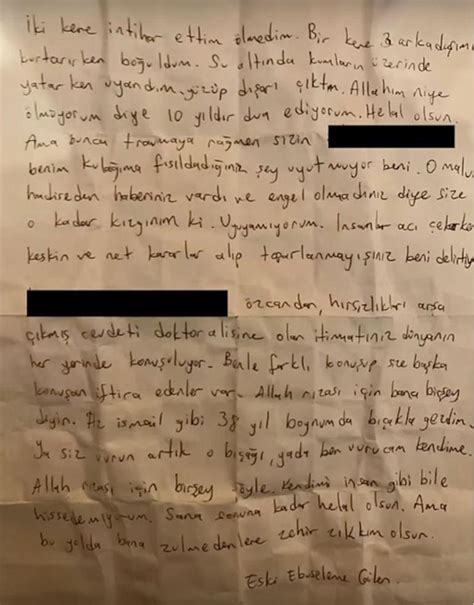 İki kere intihar ettim ölmedim. Bir kere 3 arkadaşımı
kurtarırken boğuldum. Su altında kumların üzerinde
yatarken uyandım. yüzüp dışarı çıktım. Allahım niye
ölmüyorum diye 10 yıldır dua ediyorum. Helal olsun.
Ama bunca travmaya rağmen sizin
benim kulağıma fısıldadığınız şey uyutmuyor beni. O malu
hadiseden haberiniz vardı ve engel olmadınız diye size
o kadar kızgınım ki. Uyuyamıyorum. İnsanlar acı çekerke
keskin ve net kararlar alıp toparlanmayışınız beni delirtiy
özcandan, hırsızlıkları arşa
çıkmış cevdeti doktor alisine olan itimatınız dünyanın
her yerinde konuşuluyor. Benle farklı konuşup size başka
konuşan iftira edenler var. Allah rızası için bana birşey
diyin. Hz ismail gibi 38 yıl boynumda bıçakla gezdim.
Ya siz vurun artık o bıçağı, yada ben vurucam kendime.
Allah rızası için birşey söyle. Kendimi insan gibi bile
hissedemiyorum. Sana sonuna kadar helal olsun. Ama
bu yolda bana zulmedenlere zehir zıkkım olsun.
Eski Ebuseleme Gülen